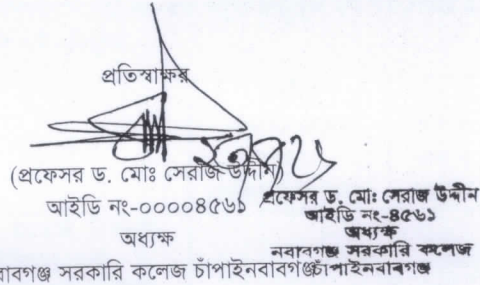 প্রতিস্বাক্ষর
(প্রফেসর ড. মোঃ সেরাজ উদ্দীন)
আইডি নং-০০০০৪৫৬১
অধ্যক্ষ
বাবগঞ্জ সরকারি কলেজ চাঁপাইনবাবগঞ্জ
প্রফেসর ড. মোঃ সেরাজ উদ্দীন
আইডি নং-৪৫৬১
অধ্যক্ষ
নবাবগঞ্জ সরকারি কলেজ
চাঁপাইনবাবগঞ্জ